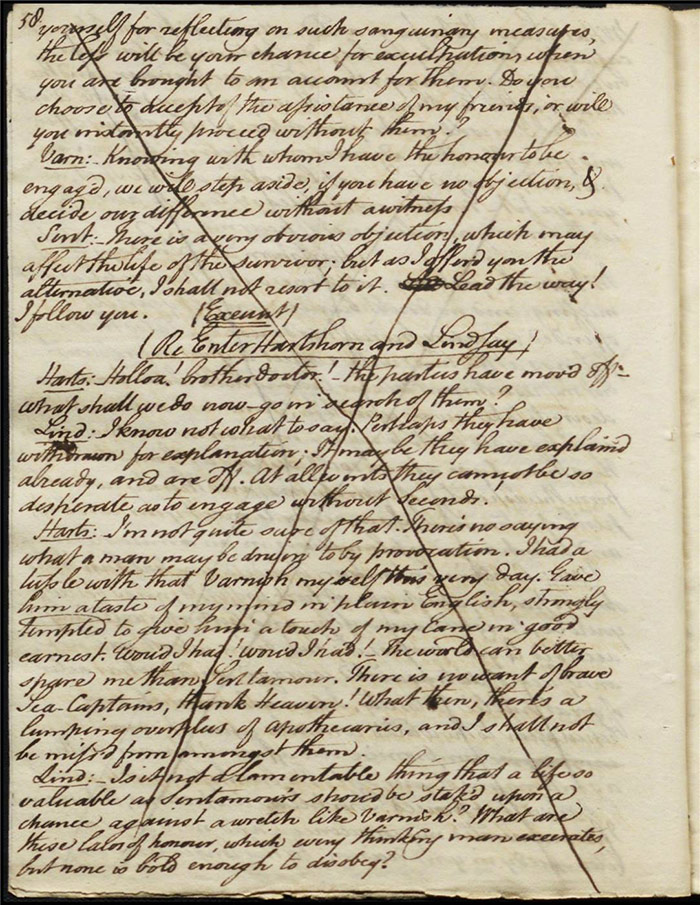 58.
yourself for reflecting on such sanguinary measures,
the less will be your chance for excultration, when
you are brought to an account for them. Do you
choose to accept of the assistance of my friends, or will
you instantly proceed without them?
Varn:- Knowing with whom I have the honour to be
engag'd, we will step aside, if you have no objection, &
decide our difference without a witness
Sent:- There is a very obvious objection, which may
affect the life of the survivor; but as I afford you the
alternative, I shall not resort to it. Lead the way!
I follow you. (Exeunt)
(Re Enter Hartshorn and Lindsay)
Harts:- Holloa! brother doctor!- the parties have mov'd off-
what shall we do now- go in search of them?
Lind: I know not what to say. Perhaps they have
withdrawn for explanation; It may be they have explaind
already, and are off. At all events they cannot be so
desperate as to engage without seconds.
Harts:- I'm not quite sure of that. There's no saying
what a man may be drawn to by provocation. I had a
tussle with that Varnish myself this very day. Gave
him a taste of my mind in plain English, strongly
tempted to give him a touch of my Cane in good
earnest. Would I had! would I had!- The world can better
spare me than Sentamour. There is no want of brave
Sea-Captains, thank Heaven! What then, there's a
lumping overplus of apothecaries, and I shall not
be miss'd from amongst them.
Lind:- Is it not a lamentable thing that a life so
valuable as Sentamour's should be stak'd upon a
chance against a wretch like Varnish? What are
these laws of honour, which every thinking man execrates,
but none is bold enough to disobey?